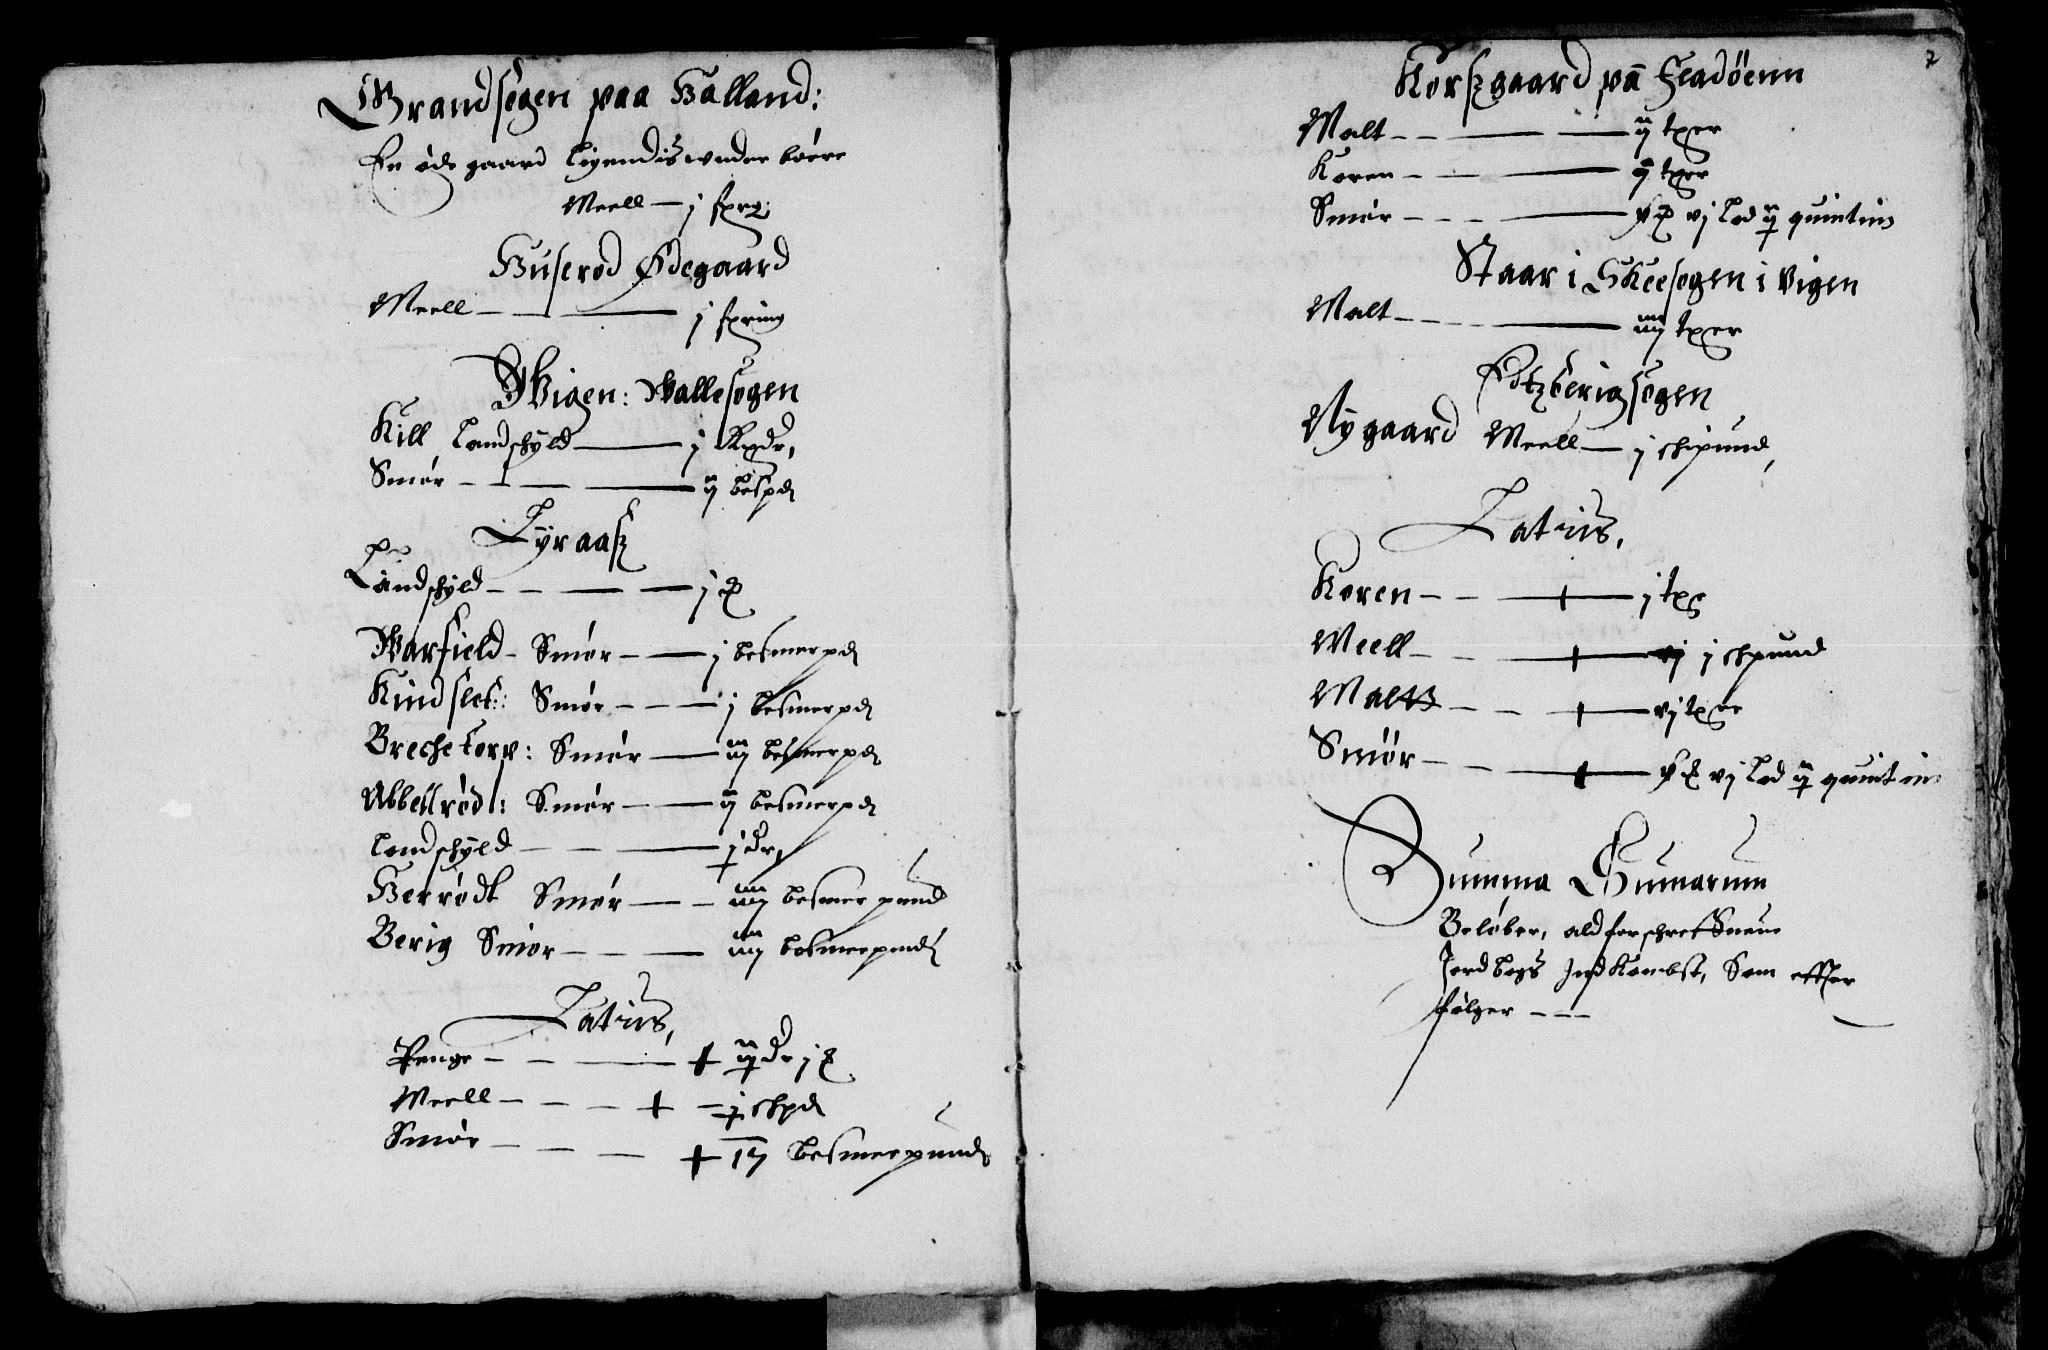 Grandsogen paa Halland:
En øde gaard ligendis under bøere
Meell — j sprg:
Huserød Ødegaard
Meell — j spring
Wigen: Wallesogen
Kill Landschyld — j Rgdr,
Smør — ij bespd
Lyraasz
Landschyld — j
Warfield Smør — j besmerpd
Kindslet: Smør — j besmerpd
Brechetorp: Smør — iij besmerpd
Abbellrødt: Smør — ij besmerpd
Landschyld — j dr,
Herrødt Smør — iiij besmerpund
Berig Smør — iiij besmerpund
Latus,
Penge — dr j
Meell — j schpd
Smør — 17 besmerpund
2
Korszgaard på Fladøenn
Malt — ij tper
Koren — tper
Smør — vj lod quintin
Staar i Skeesogen i Vigen
Malt — iiij tper
sogen
Nygaard Meell — j schipund,
Latus,
Koren — j tp
Meell — j schpund
Malt — vj tper
Smør — vj lod quintin:
Summa Sumarum
Beløber, ald forschreffneue
Jordbogs Indkombst, Som effter
følger